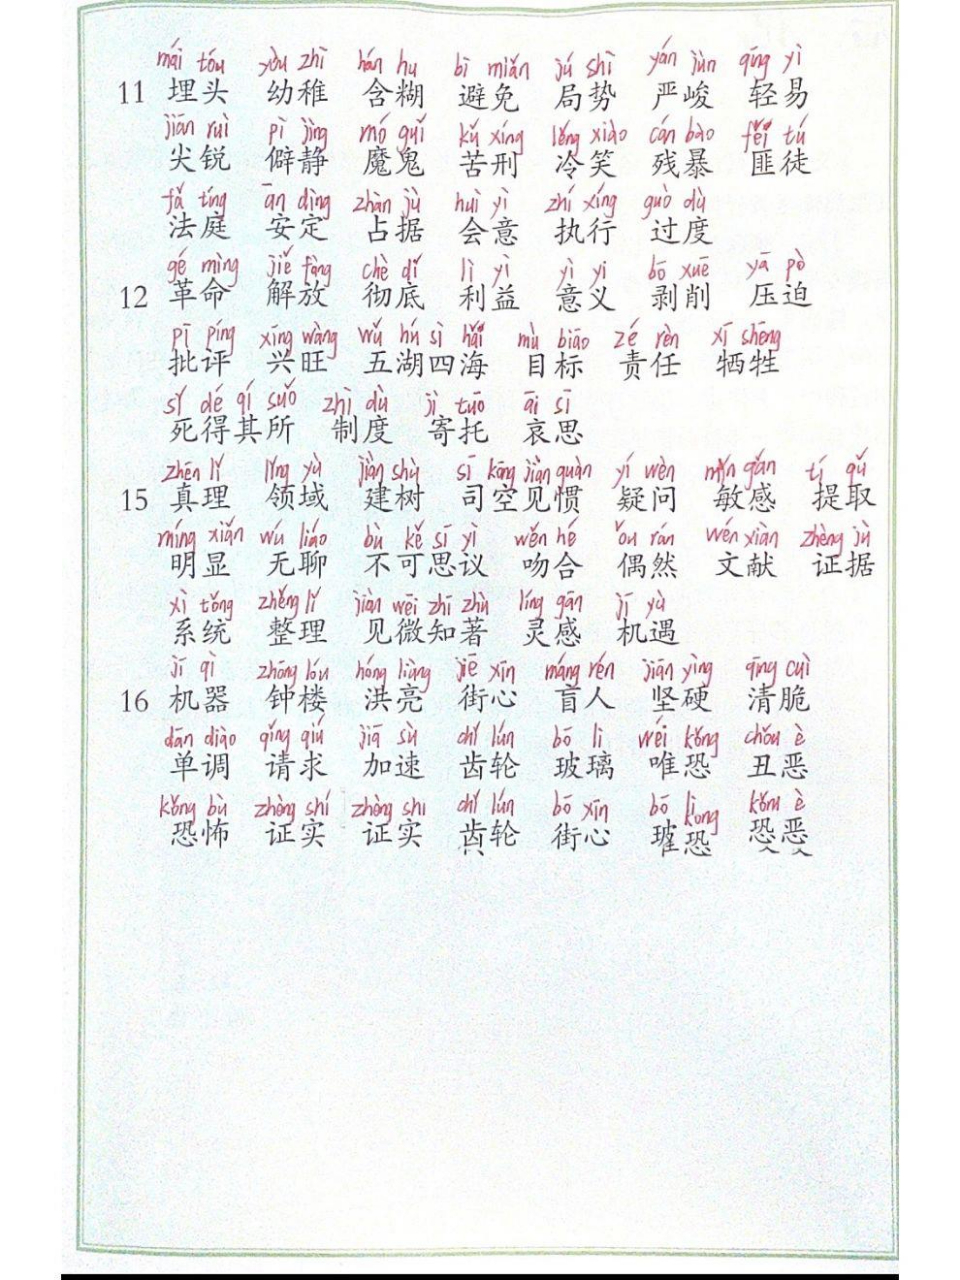 mái tóu yòu zhì hán hu bì miǎn jú shì yán jùn qīng yì
11 埋头 幼稚 含糊 避免 局势 严峻 轻易
jiān ruì pì jìng mó guǐ kǔ xíng lěng xiào cán bào fěi tú
尖锐 僻静 魔鬼 苦刑 冷笑 残暴 匪徒
fǎ tíng ān dìng zhàn jù huì yì zhí xíng guò dù
法庭 安定 占据 会意 执行 过度
gé mìng jiě fàng chè dǐ lì yì yì yi bō xuē yā pò
12 革命 解放 彻底 利益 意义 剥削 压迫
pī píng xīng wàng wǔ hú sì hǎi mù biāo zé rèn xī shēng
批评 兴旺 五湖四海 目标 责任 牺牲
sǐ dé qí suǒ zhì dù jì tuō āi sī
死得其所 制度 寄托 哀思
zhēn lǐ lǐng yù jiàn shù sī kōng jiàn guàn yí wèn mǐn gǎn tí qǔ
15 真理 领域 建树 司空见惯 疑问 敏感 提取
míng xiǎn wú liáo bù kě sī yì wěn hé ǒu rán wén xiàn zhèng jù
明显 无聊 不可思议 吻合 偶然 文献 证据
xì tǒng zhěng lǐ jiàn wēi zhī zhù líng gǎn jī yù
系统 整理 见微知著 灵感 机遇
jī qì zhōng lóu hóng liàng jiē xīn máng rén jiān yìng qīng cuì
16 机器 钟楼 洪亮 街心 盲人 坚硬 清脆
dān diào qǐng qiú jiā sù chǐ lún bō li wéi kǒng chǒu è
单调 请求 加速 齿轮 玻璃 唯恐 丑恶
kǒng bù zhèng shí zhèng shı chǐ lún bō xīn bō kong è
恐怖 证实 证实 齿轮 街心 恐 恐恶